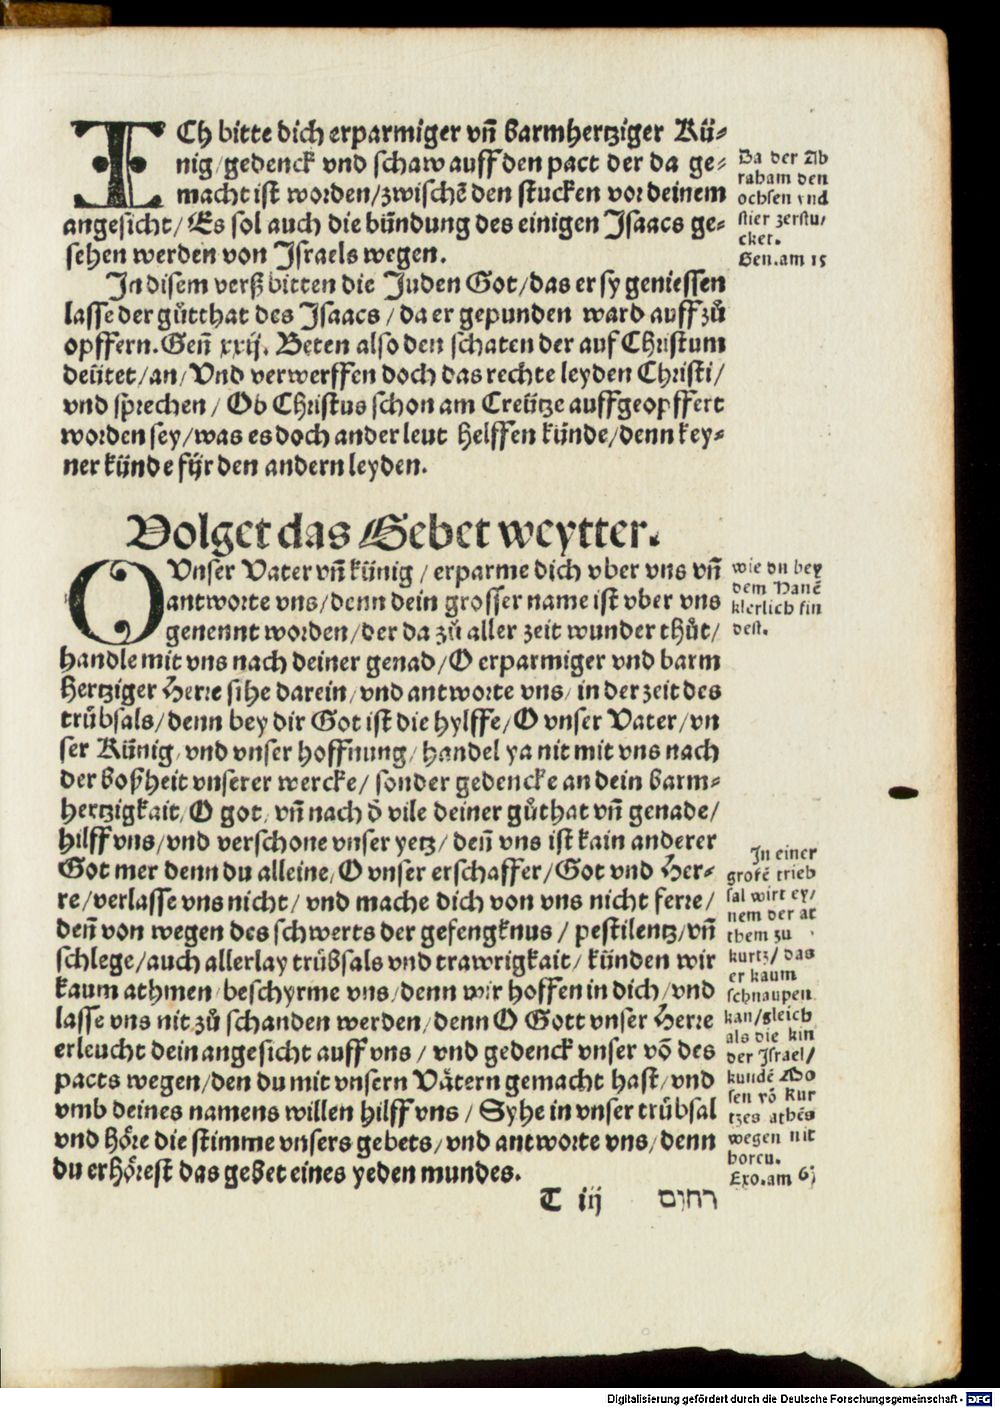 ICh bitte dich erparmiger vñ barmhertziger Kü-
nig/gedenck vnd schaw auff den pact der da ge-
macht ist worden/zwischẽ den stucken vor deinem
angesicht/Es sol auch die bündung des einigen Isaacs ge-
sehen werden von Israels wegen.
In disem verß bitten die Juden Got/das er sy geniessen
lasse der gůtthat des Isaacs/da er gepunden ward auff zů
opffern.Geñ xxij. Beten also den schaten der auf Christum
deütet/an/Vnd verwerffen doch das rechte leyden Christi/
vnd sprechen/Ob Christus schon am Creütze auffgeopffert
worden sey/was es doch ander leut helffen künde/denn key-
ner künde für den andern leyden.
Da der Ab
raham den
ochsen vnd
stier zerstu/
cket.
Gen.am 15
Volget das Gebet weytter.
O Vnser Vater vñ künig/erparme dich vber vns vñ
antworte vns/denn dein grosser name ist vber vns
genennt worden/der da zů aller zeit wunder thůt/
handle mit vns nach deiner genad/O erparmiger vnd barm
hertziger Herre sihe darein/vnd antworte vns/in der zeit des
trübsals/denn bey dir Got ist die hylffe/O vnser Vater/vn
ser Künig/vnd vnser hoffnung/handel ya nit mit vns nach
der boßheit vnserer wercke/sonder gedencke an dein barm-
hertzigkait/O got/vñ nach d̄ vile deiner gůthat vñ genade/
hilff vns/vnd verschone vnser yetz/deñ vns ist kain anderer
Got mer denn du alleine/O vnser erschaffer/Got vnd Her-
re/verlasse vns nicht/vnd mache dich von vns nicht ferre/
deñ von wegen des schwerts der gefengknus/pestilentz/vñ
schlege/auch allerlay trübsals vnd trawrigkait/künden wir
kaum athmen/beschyrme vns/denn wir hoffen in dich/vnd
lasse vns nit zů schanden werden/denn O Gott vnser Herre
erleucht dein angesicht auff vns/vnd gedenck vnser võ des
pacts wegen/den du mit vnsern Vätern gemacht hast/vnd
vmb deines namens willen hilff vns/Syhe in vnser trübsal
vnd höre die stimme vnsers gebets/vnd antworte vns/denn
du erhörest das gebet eines yeden mundes.
wie du bey
dem Danẽ
klerlich fin
dest.
In einer
grosẽ trieb
sal wirt ey/
nem der at
them zu
kurtz/das
er kaum
schnaupen
kan/gleich
als die kin
der Israel/
kundẽ Mo
sen võ kur
tzes athẽs
wegen nit
horen.
Exo.am 6
T iij רחום
Digitalisierung gefördert durch die Deutsche Forschungsgemeinschaft - DFG